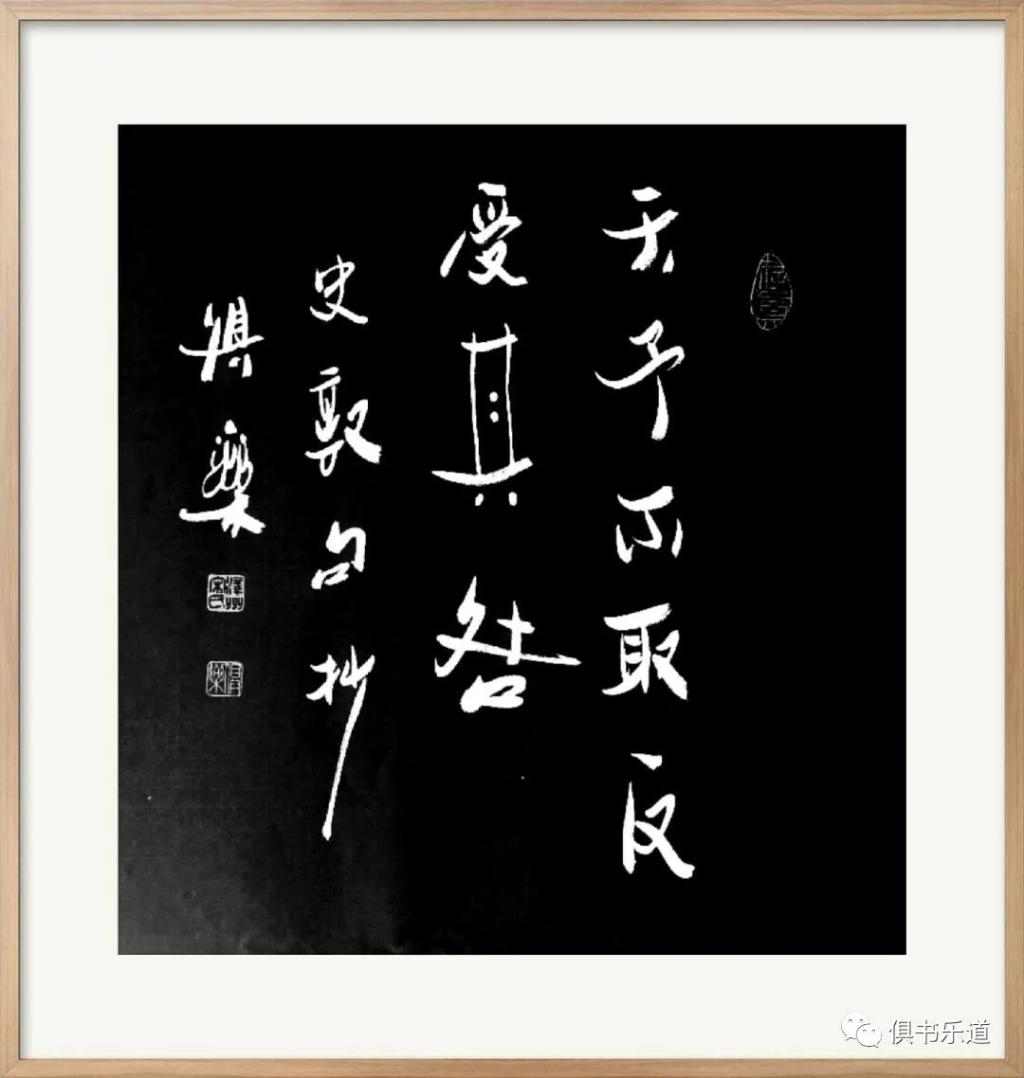 天予不取反
受其咎
史敦句抄
俱樂
俱书乐道